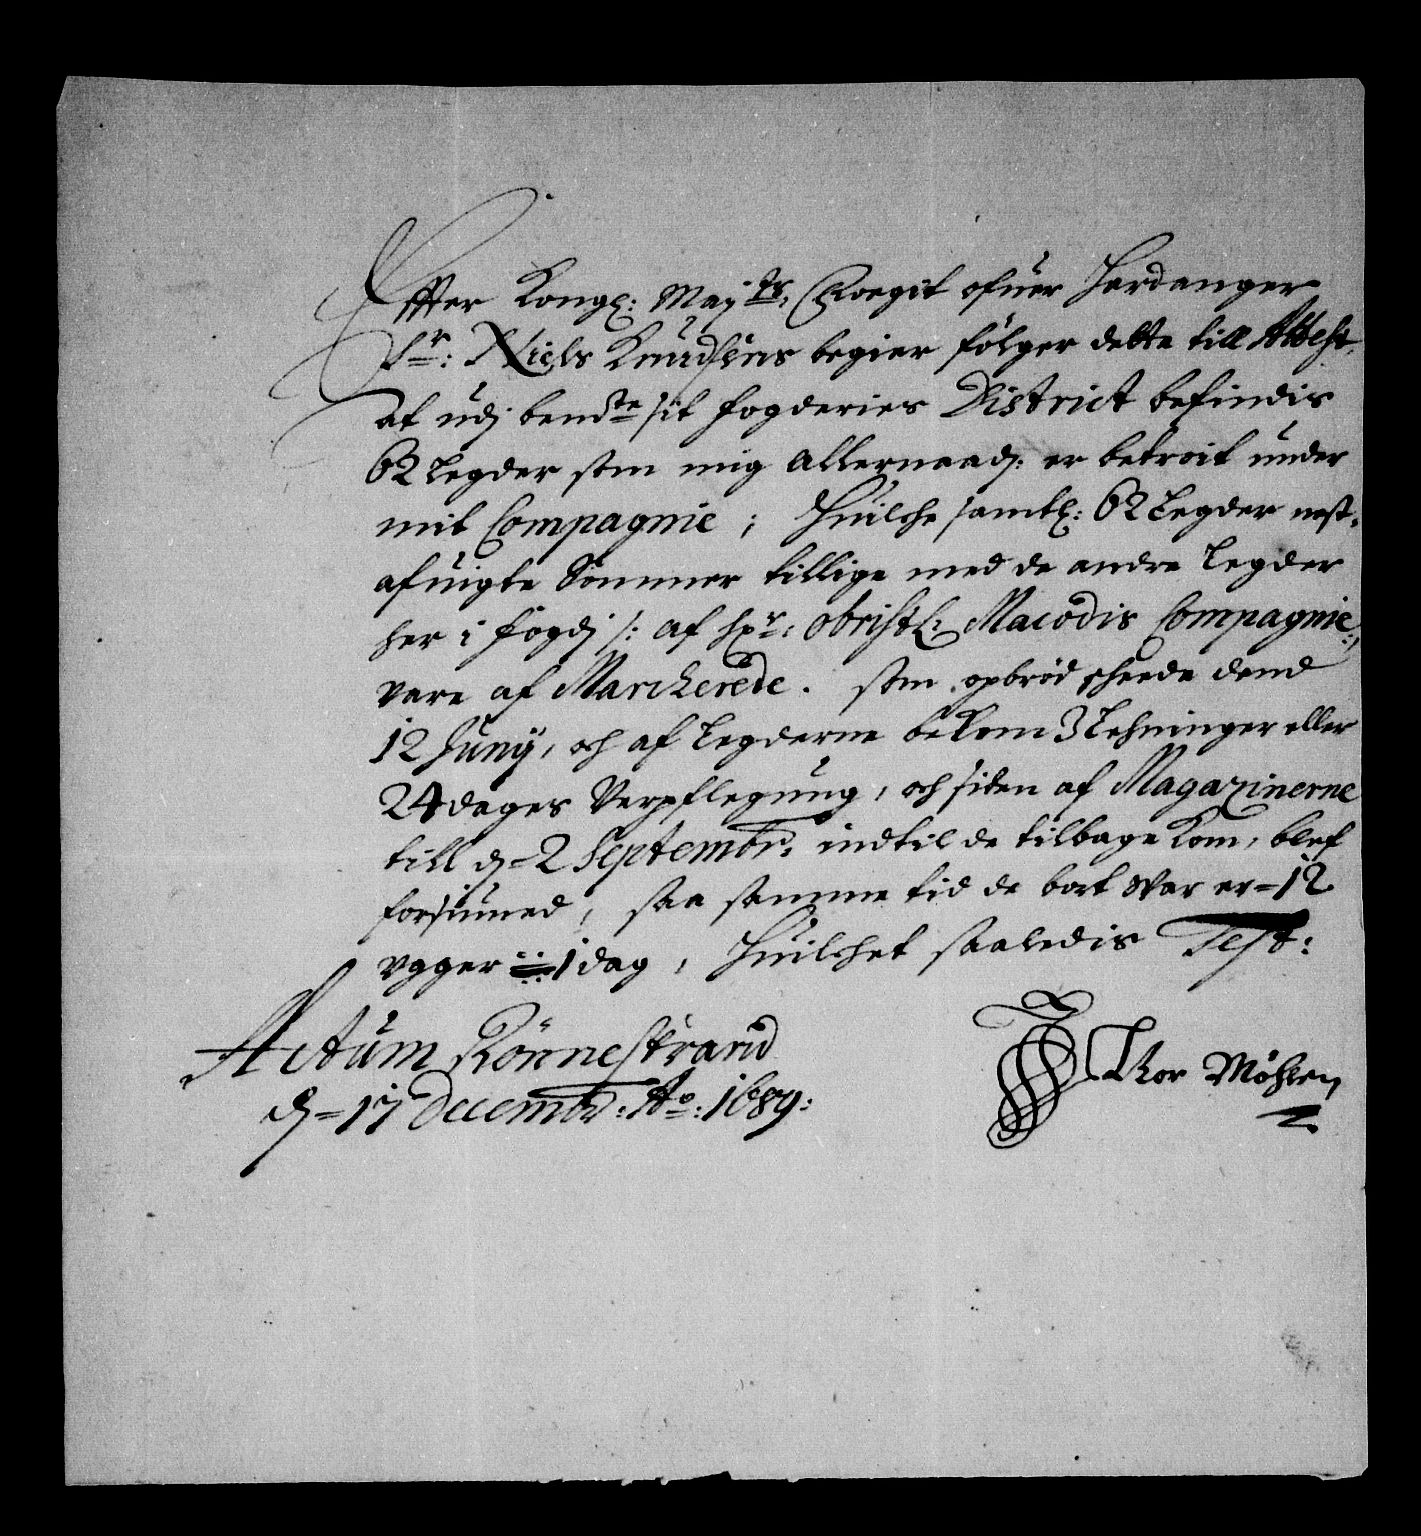 Effter Kongl: Mayts: Foegit ofuer Hardanger
Sr: Niels Knudsens begier følger dette till Attest,
at udj bemte sit fogderies District befindis
62 Legder som mig allernaad: er betroit under
mit Compagnie; Huilche samtl: 62 Legder nest-
afuigte Sommer tillige med de andre Legder
her i fogdj /: af hr: obristl: Macodis Compagnie :/
vare af Marcherede. som opbrød scheede dend
12 Juny, och af Legderne bekom 3 Lehninger eller
24 dages Verpflegung, och siden af Magazinerne
till d= 2 Septembr: indtil de tilbage kom, blef
forsiuned, saa samme tid de bort var er= 12
Ugger 1 dag, Huilchet saaledis Test:
Actum Rönnestrand
d= 17 Decembr: Ao: 1689:
Thor Møhlen